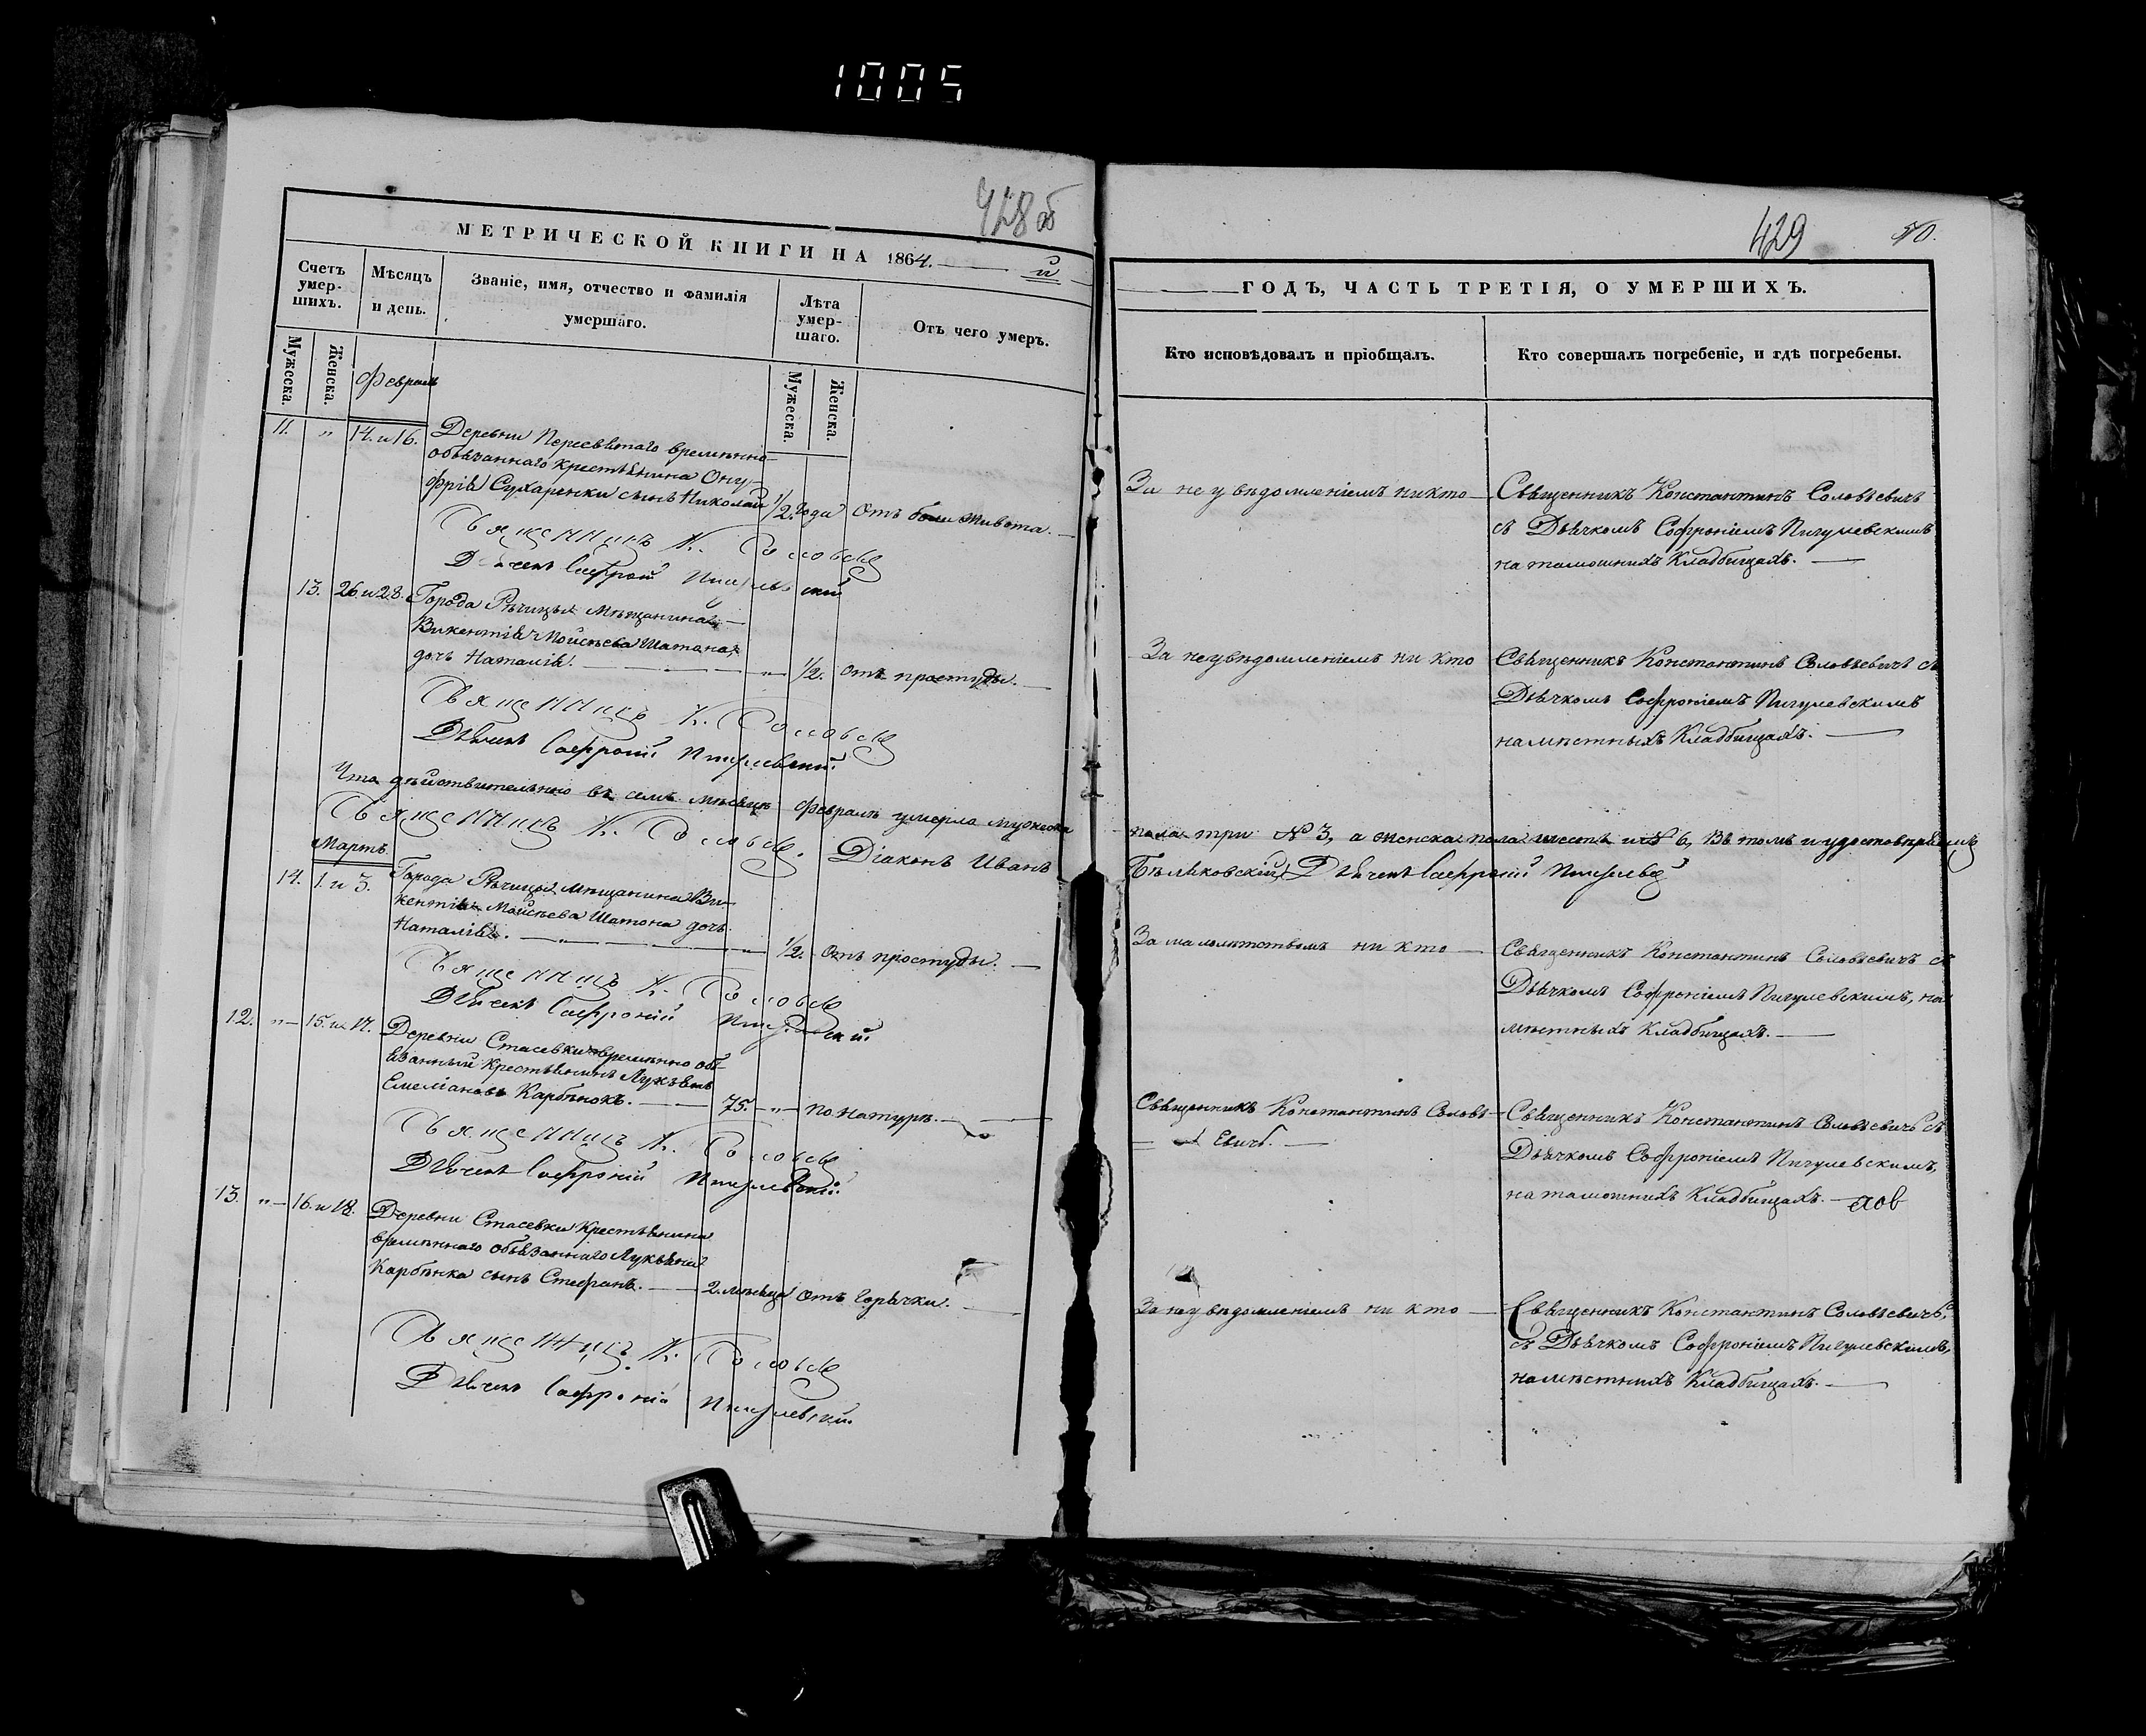 1005
428 об
МЕТРИЧЕСКОЙ КНИГИ НА 1864. й
Счетъ умер-шихъ.
Мѣсяцъ и день.
Званіе, имя, отчество и фамилія умершаго.
Лѣта умер-шаго.
Отъ чего умеръ.
Мужеска.
Женска.
Февраль
Мужеска.
Женска.
11. " 14. и 16. Деревни Пересвятаго временно-
обязаннаго крестьянина Ону-
фрія Сухаренки сынъ Николай 1/2. года Отъ боли живота.
Священникъ К. Соловьев
Дьячекъ Софроній Пигулевскій
13. 26. и 28. Города Рѣчицы Мѣщанина
Викентія Мойсѣева Шатона
дочь Наталія. " 1/2. Отъ простуды.
Священникъ К. Соловьев
Дьячекъ Софроній Пигулевскій
Что дѣйствительно въ семъ мѣсяцѣ Февралѣ умерло мужеска
Священникъ К. Соловьев. Діаконъ Иванъ
Мартъ
14. 1. и 3. Города Рѣчицы мѣщанина Ви-
кентія Мойсѣева Шатона дочь
Наталія. " 1/2. Отъ простуды.
Священникъ К. Соловьев
Дьячекъ Софроній Пигулевскій
12. " 15. и 17. Деревни Стасевки временно обя-
занный Крестьянинъ Лукьянъ
Емеліановъ Карбѣнокъ. 75. " по натурѣ.
Священникъ К. Соловьев
Дьячекъ Софроній Пигулевскій
13. " 16. и 18. Деревни Стасевки Крестьянина
временнаго обязаннаго Лукьяна
Карбѣнка сынъ Стефанъ. 2. мѣсяца Отъ горячки.
Священникъ К. Соловьев
Дьячекъ Софроній Пигулевскій
429
50.
ГОДЪ, ЧАСТЬ ТРЕТІЯ, О УМЕРШИХЪ.
Кто исповѣдовалъ и пріобщалъ.
Кто совершалъ погребеніе, и гдѣ погребены.
За неувѣдомленіемъ никто Священникъ Константинъ Соловьевичъ
съ Дьячкомъ Софроніемъ Пигулевскимъ
на тамошнихъ Кладбищахъ.
За неувѣдомленіемъ ни кто Священникъ Константинъ Соловьевичъ съ
Дьячкомъ Софроніемъ Пигулевскимъ
на мѣстныхъ Кладбищахъ.
пола три № 3, а женска пола шесть и № 6, Въ томъ и удостовѣряемъ
Бѣляковскій Дьячекъ Софроній
За малолѣтствомъ ни кто Священникъ Константинъ Соловьевичъ съ
Дьячкомъ Софроніемъ Пигулевскимъ, на
мѣстныхъ Кладбищахъ.
Священникъ Константинъ Соловь- Священникъ Константинъ Соловьевичъ съ
евичъ. Дьячкомъ Софроніемъ Пигулевскимъ,
на тамошнихъ Кладбищахъ.
За неувѣдомленіемъ ни кто Священникъ Константинъ Соловьевичъ,
съ Дьячкомъ Софроніемъ Пигулевскимъ,
на мѣстнихъ Кладбищахъ.